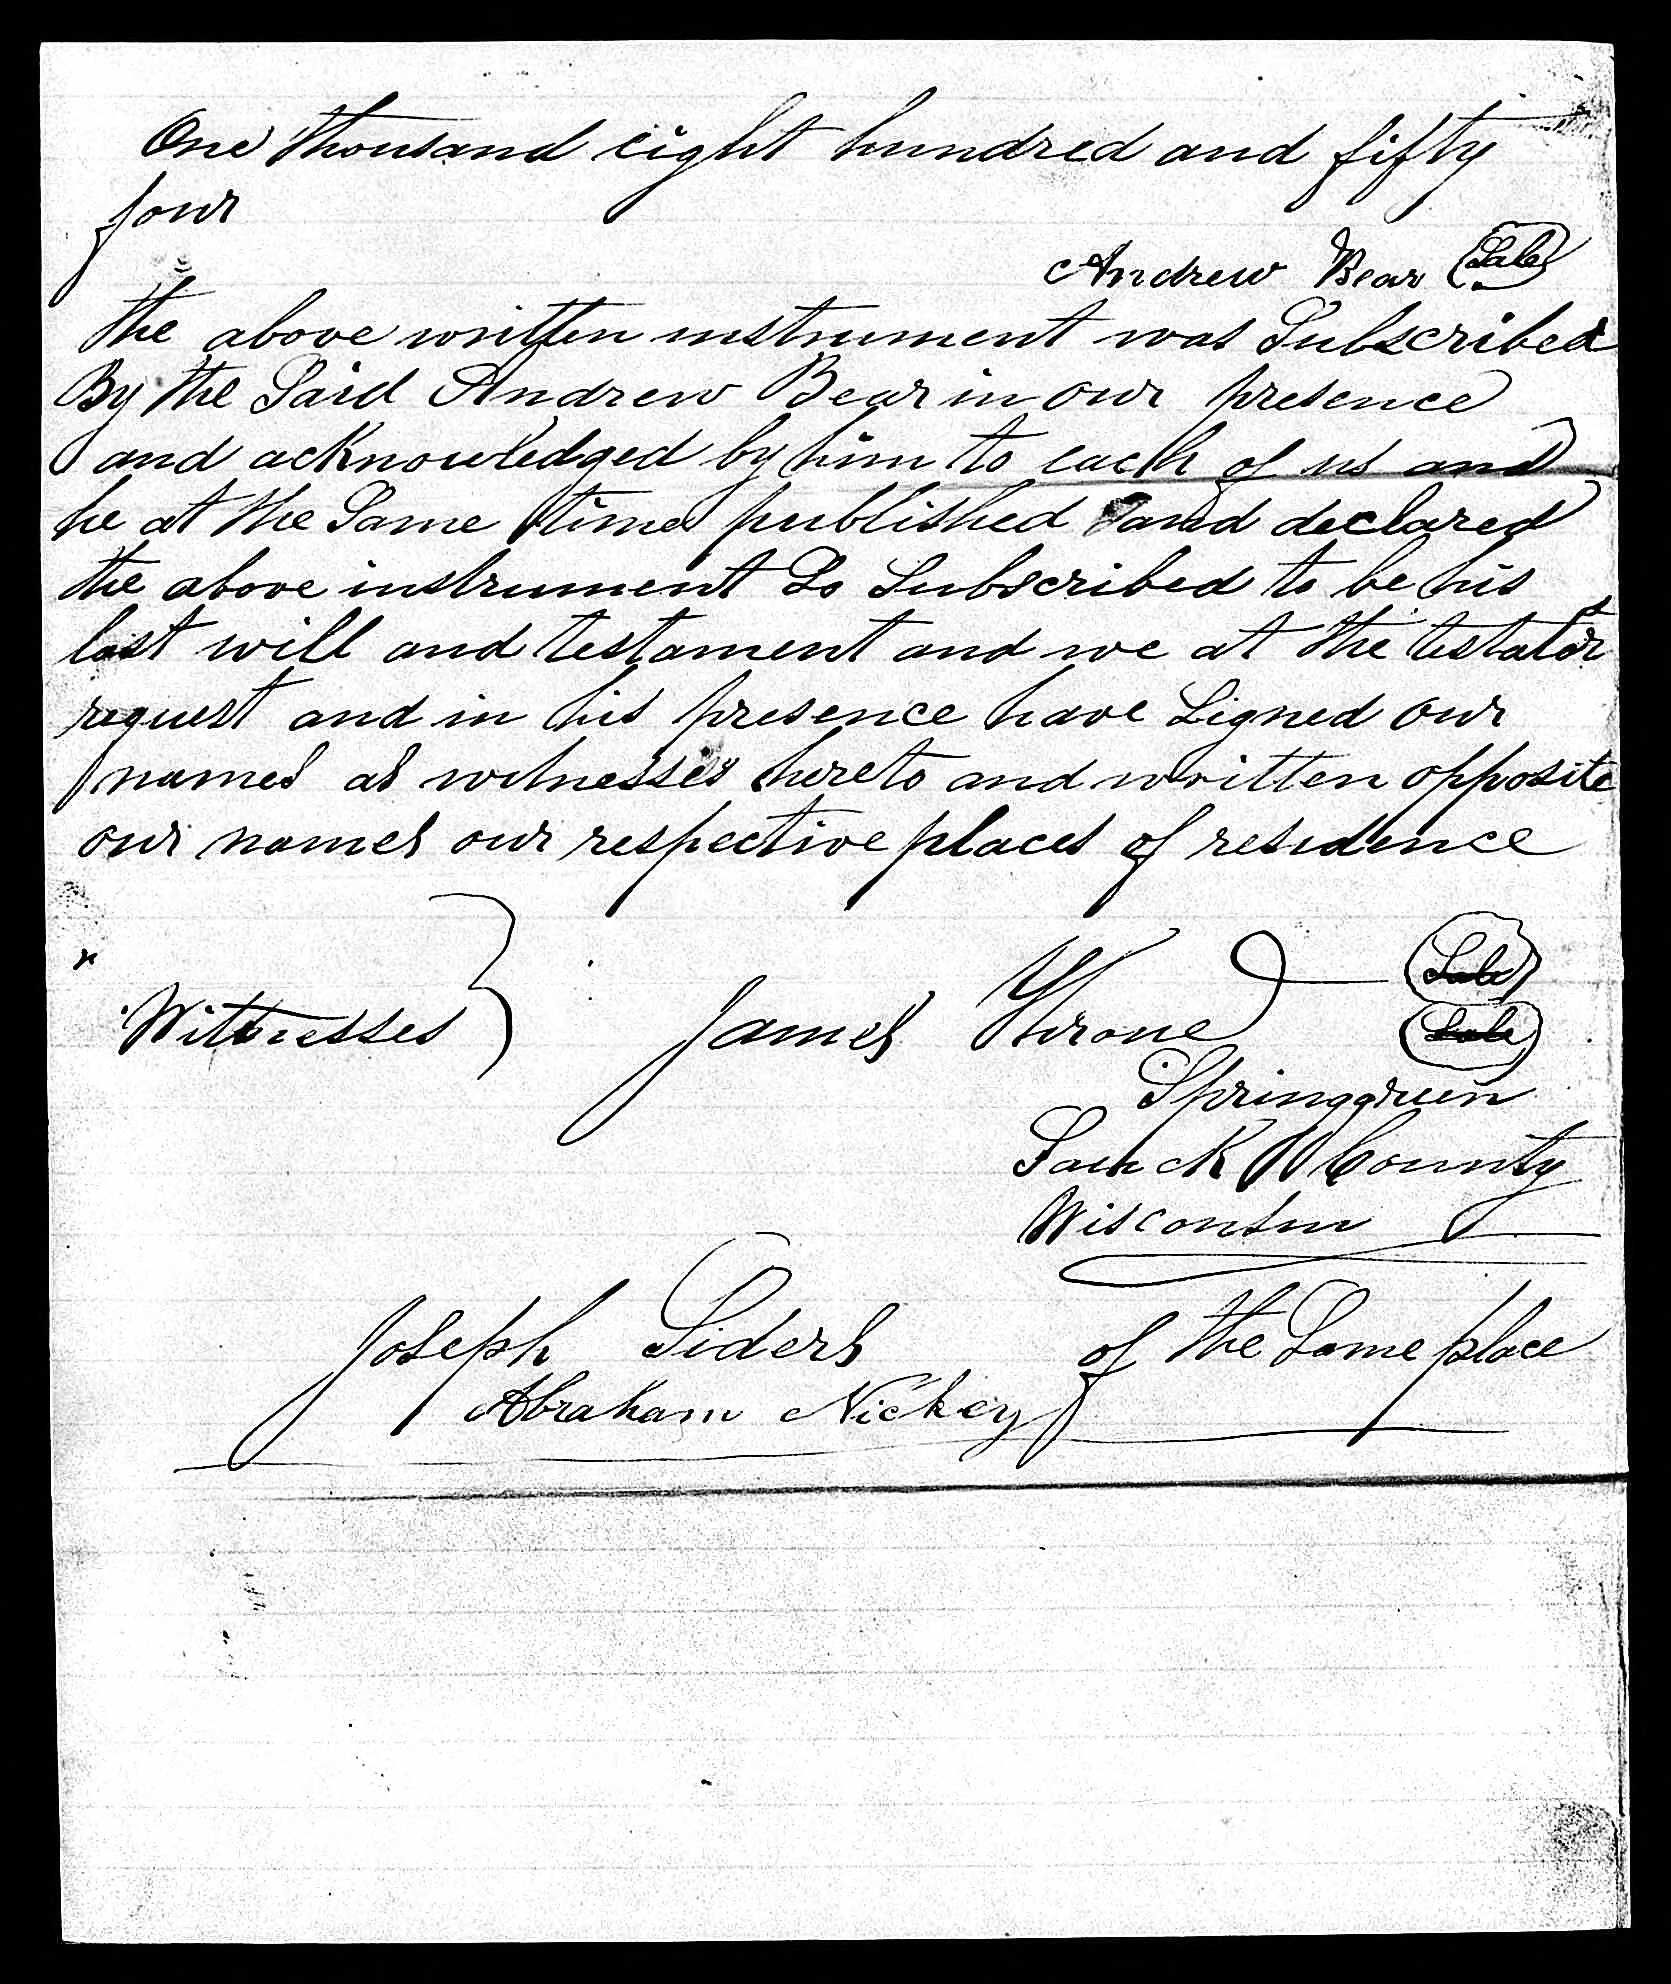 One thousand eight hundred and fifty
four
Andrew Bear Sale
the above written instrument was Subscribed
By the Said Andrew Bear in our presence
and acKnowledged by him to each of us and
he at the Same time published and declared
the above instrument So Subscribed to be his
last will and testament and we at the testator
request and in his presence have Signed our
names as witnesses hereto and written opposite
our names our respective places of residence
Witnesses James Throne
Springgreen
County
Wisconsin
Joseph Siders of the Same place
Abraham Nickey